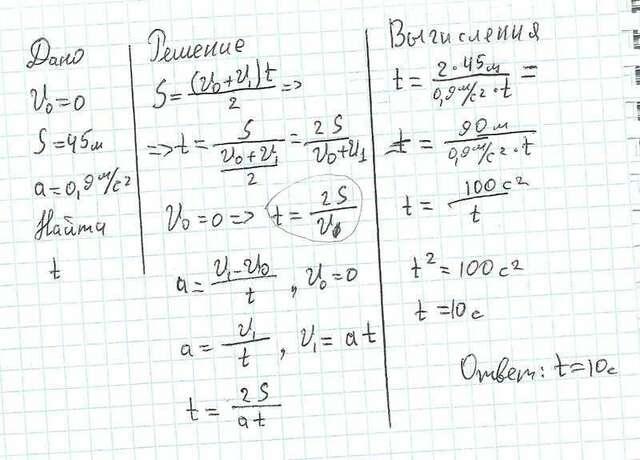 Дано
V₀=0
S=45м
a=0,9 м/с²
Найти
t
Решение
S=(V₀+V₁)t/2 =>
=> t= S/((V₀+V₁)/2) = 2S/(V₀+V₁)
V₀=0 => t= 2S/V₁
a= (V₁-V₀)/t , V₀=0
a= V₁/t , V₁= at
t= 2S/at
Вычисления
t= 2·45м/(0,9м/с²·t) =
t= 90м/(0,9м/с²·t)
t= 100с²/t
t²=100с²
t=10с
Ответ: t=10с